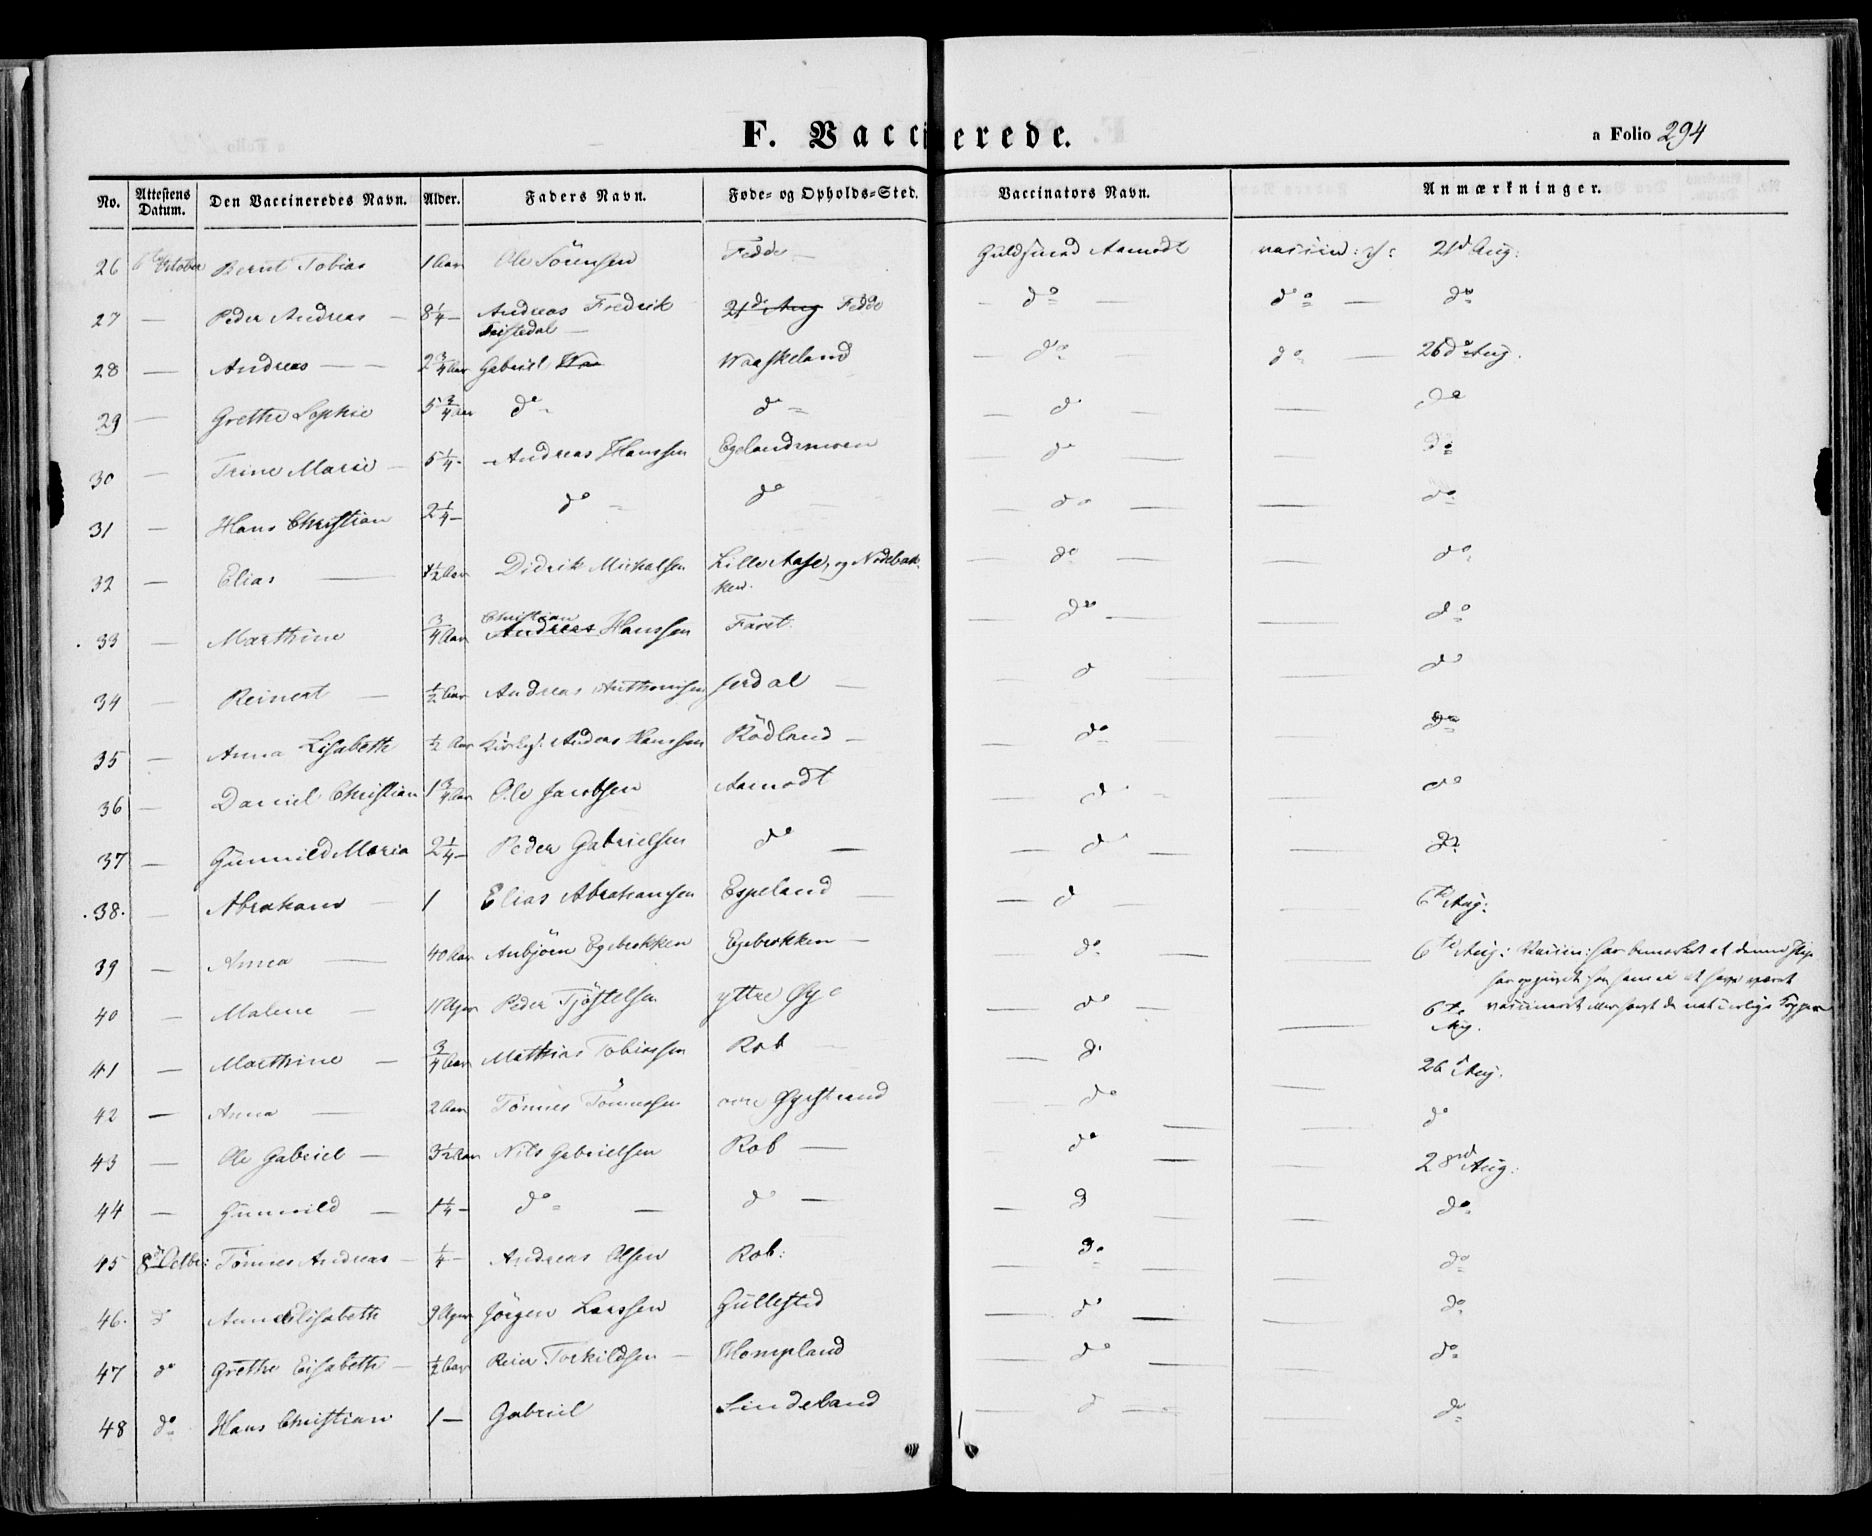 F. Vaccinerede.
a Folio 294
No. Attestens Datum. Den Vaccineredes Navn. Alder. Faders Navn. Føde- og Opholds-Sted. Vaccinators Navn. Anmærkninger.
26 6te October Bernt Tobias 1 Aar Ole Sörensen Fedde Guldsmed Aamodt 21d Aug:
27 — Peder Andreas — 8¼ — Andreas Fredrik 21d Aug Fedde — do — do — do
28 — Andreas — — 2¾ Aar Gabriel Waa Waaskeland — do do — 26do Aug.
29 — Grethe Sophie 5¾ Aar do do — d — — do
30 — Trine Marie — 5¼ — Andreas Hanssen Egelandsmoen — do — — do
31 — Hans Christian 2¼ — do do — do — — do
32 — Elias — 1½ Aar Didrik Michalsen Lille Aase, og Nodebak-
ken. — do — — do
33 — Marthine ¾ Aar Christian
Andreas Hanssen Faret do — — do
34 — Reinert — ½ Aar Andreas Anthonisen Jerdal — — d — — do
35 — Anna Lisabeth ½ Aar Anders Hanssen Rödland — — do — — do
36 — Daniel Christian 1¾ Aar Ole Jacobsen Aamodt — d — do
37 — Gunnild Maria 2¼ — Peder Gabrielsen do — — d — — do
38. — Abraham — 1 Elias Abrahamsen Espeland — — d — — 6te Aug:
39 — Anna — 40 Aar Anbjörn Egebrokken Egebrokken — — do — — 6te Aug: Vaccin: har bemærket at denne
har opgivet for ham at have været
40 — Malene — 11 Uger Peder Tjöstelsen yttre Øye — do — — 6te
Aug. vaccineret eller havt de naturlige Kopper
41 — Marthine — ¾ Aar Mathias Tobiassen Rob — — d — 26d Aug.
42 — Anna — 2 Aar Tönnes Tönnessen övre Øyestrand — do — — do
43 — Ole Gabriel — 3½ Aar Nils Gabrielsen Rob — do — — 28d Aug:
44 — Gunnild — 1¼ — do — do — — d — — do
45 8d Octbr: Tönnes Andreas — ¼ — Andreas Olsen Rob: — do — — do
46. d Anne Elisabeth 9 Uger Jörgen Larssen Gullestad — do — — do
47 do Grethe Elisabeth — ½ Aar Reier Torkildsen — Hompland — do — — do
48 do Hans Christian 1 — Gabriel Sindeland — d — — do